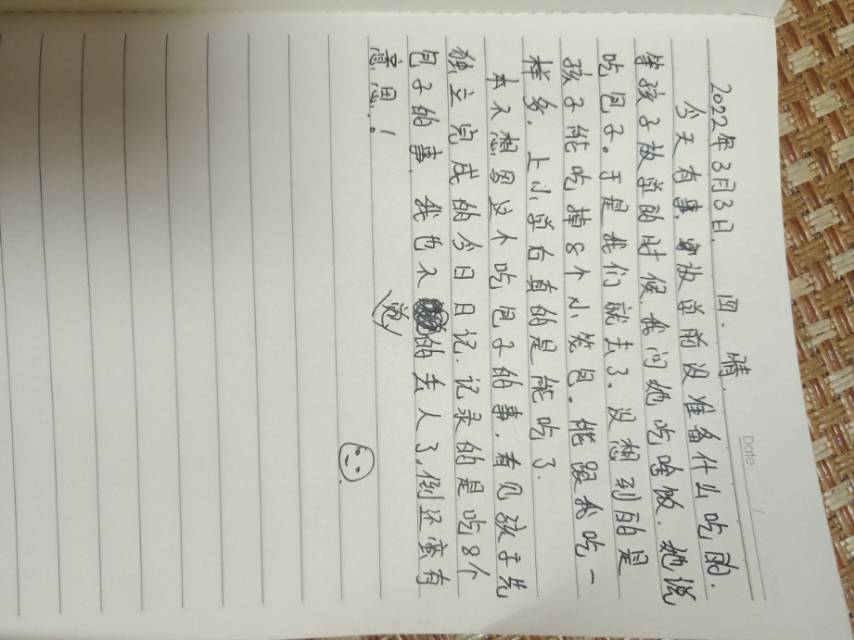 Date: /
2022年3月3日. 四. 晴.
今天有事,放学前没准备什么吃的.
等孩子放学的时候.我问她吃啥饭.她说
吃包子。于是我们就去了。没想到的是
孩子能吃掉8个小笼包.能跟我吃一
样多,上小学后真的是能吃了.
本不想写这个吃包子的事.看见孩子先
独立完成的今日日记.记录的是吃8个
包子的事,我也不 的去人了,倒还蛮有
意思!。